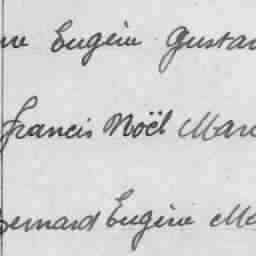 Eugène Gustav
Francis Noël Marc
Bernard Eugène Ma